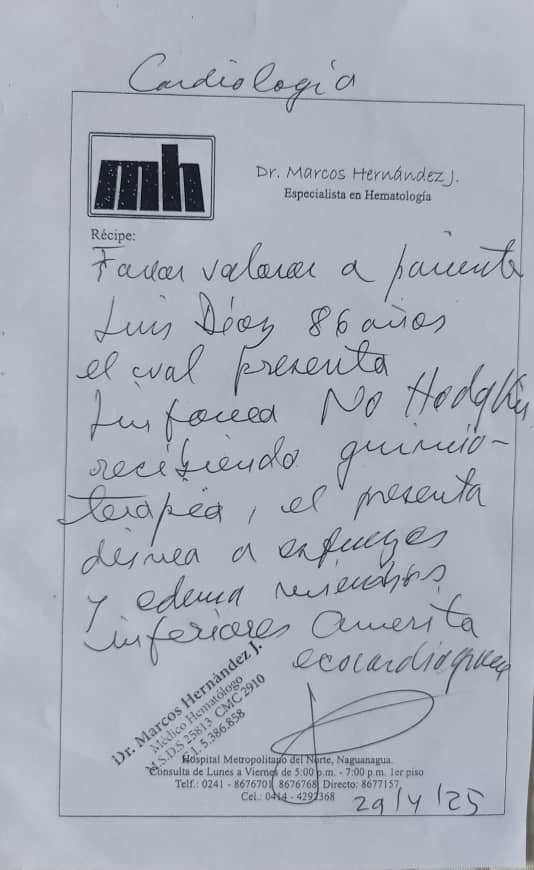 Cardiología
mh
Dr. Marcos Hernández J.
Especialista en Hematología
Récipe:
Favor valorar a paciente
Luis Díaz 86 años
el cual presenta
Linfoma No Hodgkin
recibiendo quimio-
terapia, el presenta
disnea a esfuerzos
y edema miembros
inferiores amerita
ecocardiograma
Dr. Marcos Hernández J.
Médico Hematólogo
M.S.D.S 25813 CMC 2910
C.I. 5.386.858
Hospital Metropolitano del Norte, Naguanagua.
Consulta de Lunes a Viernes de 5:00 p.m. - 7:00 p.m. 1er piso
Telf.: 0241 - 8676701 8676768 Directo: 8677157
Cel.: 0414 - 4292368
29/4/25